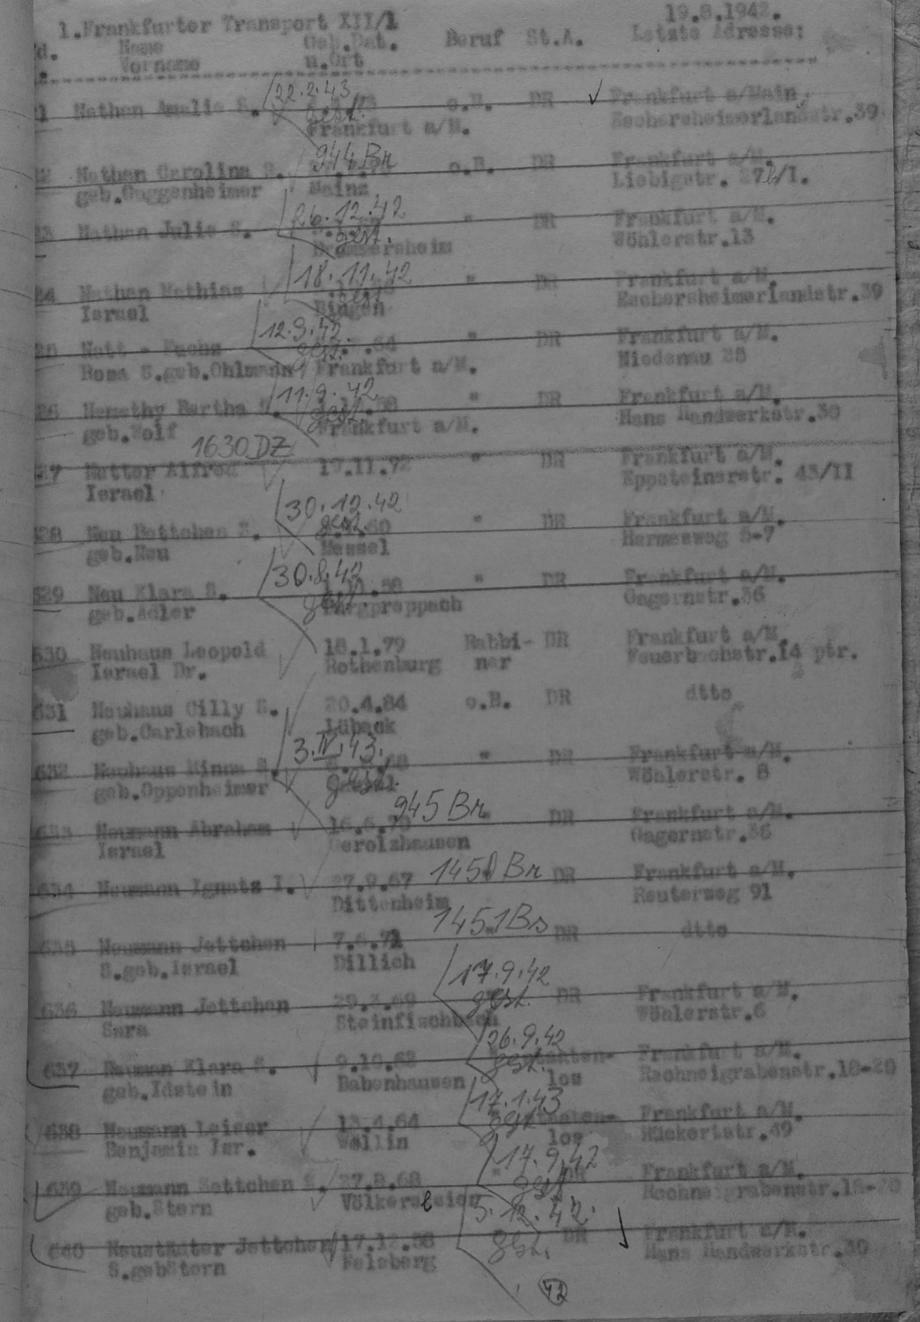 1.Frankfurter Transport XII/1 19.8.1942.
d. Name Geb.Dat. Beruf St.A. Letzte Adresse:
Vorname u.Ort
1 Nathan Amalie S. 22.2.43 o.B. DR Frankfurt a/Main
gest. Frankfurt a/M. Eschersheimerlandstr.39
2 Nathan Carolina S. 944 Br o.B. DR Frankfurt a/M.
geb.Guggenheimer Mainz Liebigstr. 27b/I.
3 Nathan Julie S. 26.12.42 " DR Frankfurt a/M.
gest. Wöhlerstr.13
24 Nathan Mathias 18.11.42 " DR Frankfurt a/M.
Israel gest. Bingen Eschersheimerlandstr.39
25 Natt - Fuchs 12.9.43 " DR Frankfurt a/M.
Rosa S.geb.Ohlmann gest. Frankfurt a/M. Niedenau 25
26 Nemethy Bertha S. 11.9.42 " DR Frankfurt a/M.
geb.Wolf gest. Frankfurt a/M. Hans Handwerkstr.30
27 Netter Alfred 1630 DZ 17.11.72 " DR Frankfurt a/M.
Israel Eppsteinerstr. 43/II
28 Neu Bettchen S. 30.12.42 " DR Frankfurt a/M.
geb.Neu gest. Messel Hermesweg 5-7
629 Neu Klara S. 30.8.42 " DR Frankfurt a/M.
geb.Adler gest. Burgpreppach Gagernstr.36
630 Neuhaus Leopold 18.1.79 Rabbi- DR Frankfurt a/M.
Israel Dr. Rothenburg ner Feuerbachstr.14 ptr.
631 Neuhaus Cilly S. 20.4.84 o.B. DR dtto
geb.Carlebach Lübeck
632 Neuhaus Minna S. 3.IV.43. " DR Frankfurt a/M.
geb.Oppenheimer gest. Wöhlerstr. 8
633 Neumann Abraham 945 Br DR Frankfurt a/M.
Israel Gerolzhausen Gagernstr.36
634 Neumann Ignatz I. 27.9.67 1450 Br DR Frankfurt a/M.
Dittenheim Reuterweg 91
635 Neumann Jettchen 7.6.71 1451 Br DR dtto
S.geb.Israel Dillich
636 Neumann Jettchen 29.3.69 17.9.42 gest. DR Frankfurt a/M.
Sara Steinfischbach Wöhlerstr.6
637 Neuman Klara S. 9.10.62 26.9.42 gest. Frankfurt a/M.
geb.Idstein Babenhausen los Rechneigrabenstr.18-20
638 Neumann Leiser 13.4.64 17.1.43 gest. Frankfurt a/M.
Benjamin Isr. Wollin los Rückertstr.49
639 Neumann Settchen S. 27.8.68 17.9.42 gest. DR Frankfurt a/M.
geb.Stern Völkersleier Rechneigrabenstr.18-20
640 Neustädter Jettchen 17.12.58 3.12.42. gest. DR Frankfurt a/M.
S.gebStern Felsberg Hans Handwerkstr.30
42